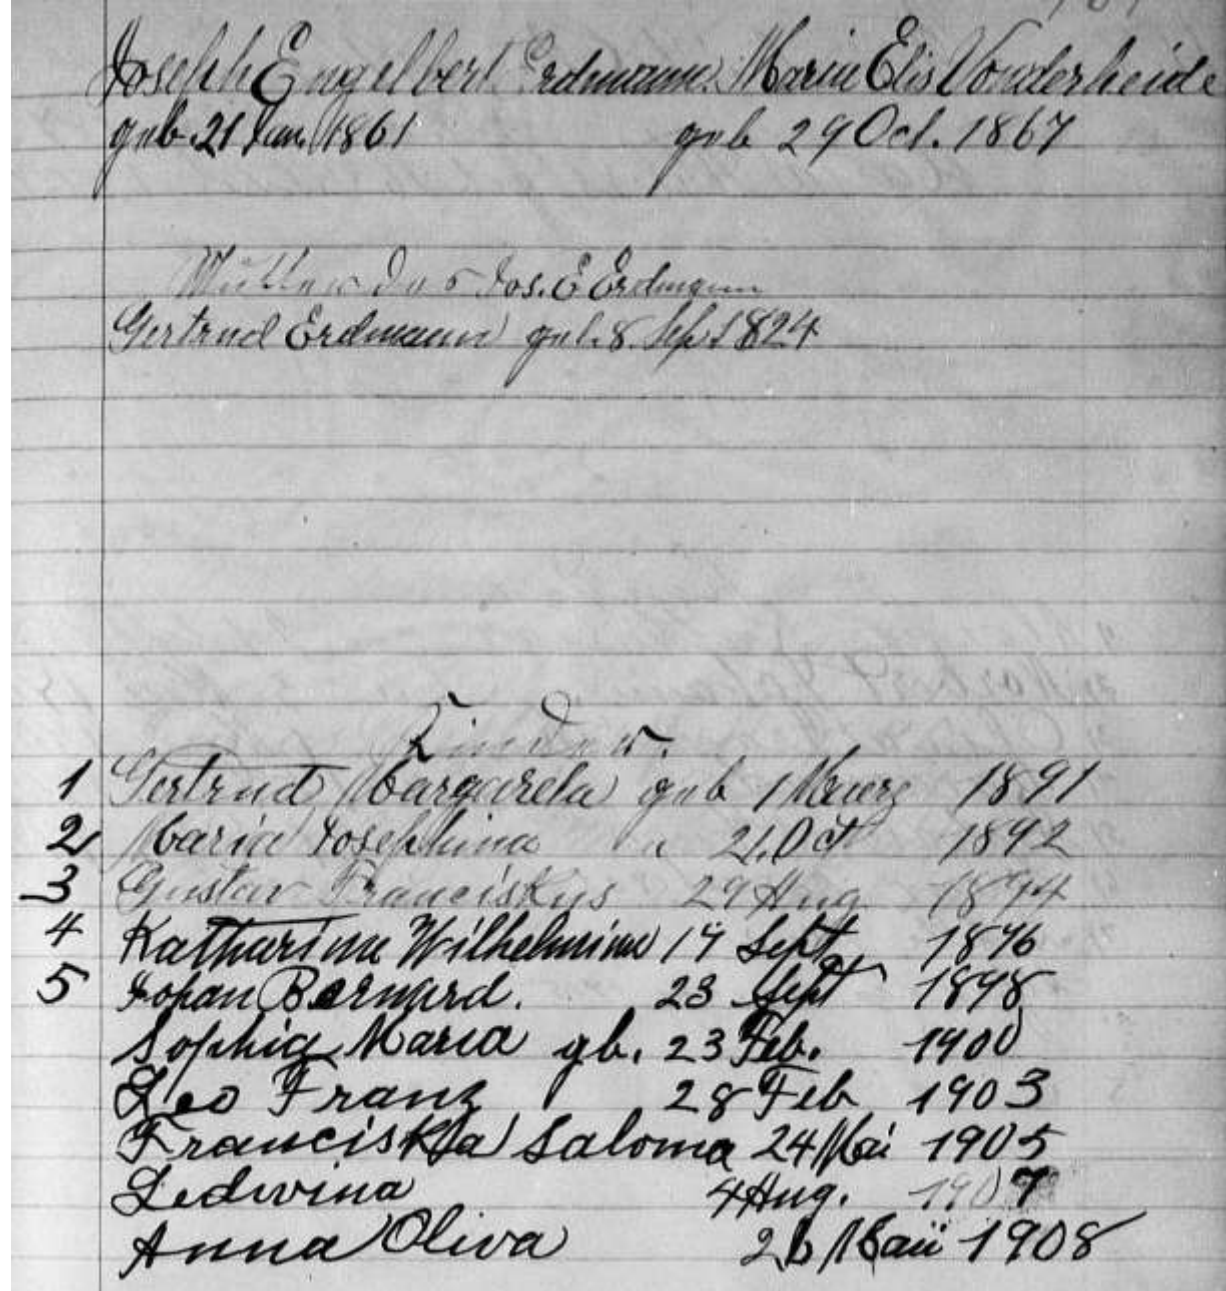 Joseph Engelbert Erdmann. Marie Elis Vonderheide
geb. 21 Jan. 1861 geb 29 Oct. 1867
Mutter des Jos. E Erdmann
Gertrud Erdmann geb. 8. Sep. 1824
Kinder.
1 Gertrud Margareta geb 1 Maerz 1891
2 Maria Josephina " 21. Oct 1892
3 Gustav Franciskus 29 Aug. 1894
4 Katharina Wilhelmina 14 Sept. 1896
5 Johan Bernard. 23 Sept 1898
Sophia Maria gb. 23 Feb. 1900
Leo Franz 28 Feb 1903
Franciska Saloma 24 Mai 1905
Ledwina 4 Aug. 1907
Anna Oliva 26 Maii 1908